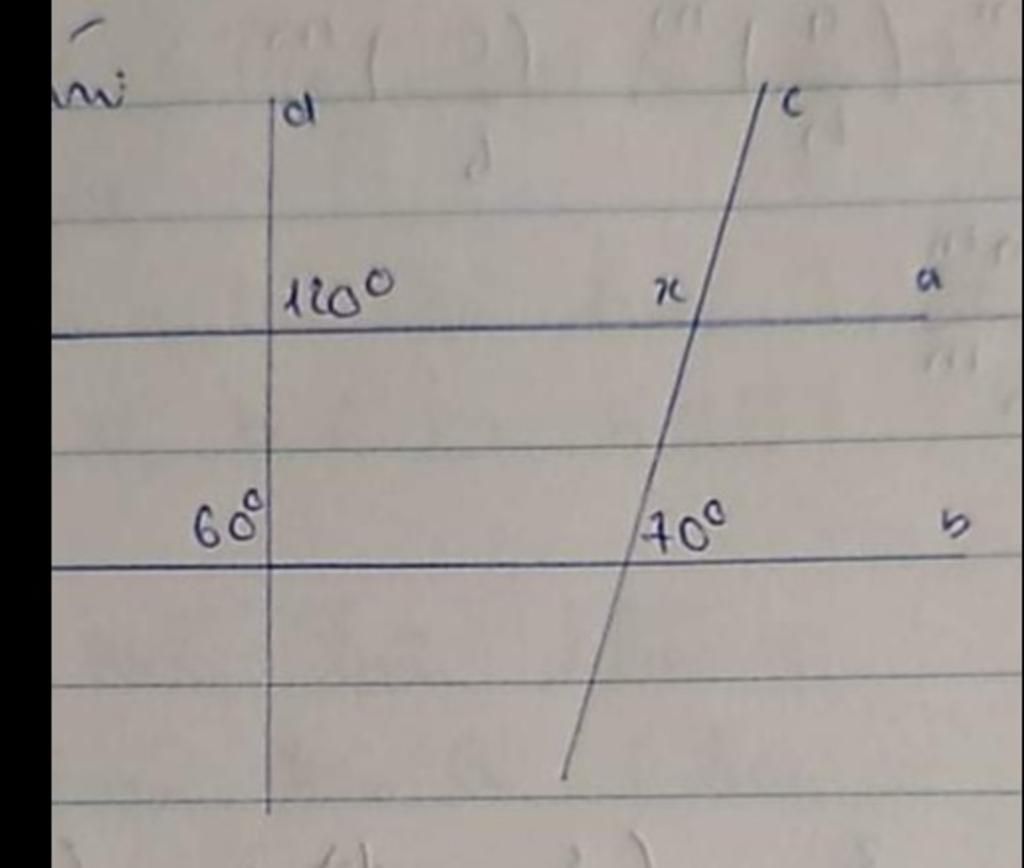 d c
120° x a
60° 70° b